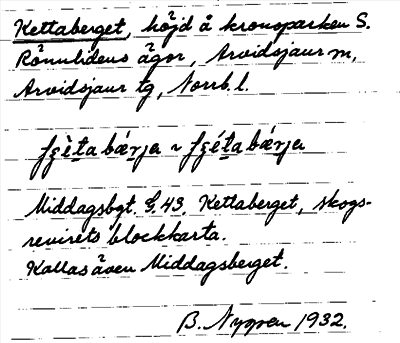 Kettaberget, höjd å kronoparken S.
Rönnlidens ägor, Arvidsjaur m,
Arvidsjaur tg, Norrb. l.
fʒèta bærja ~ fʒéta bærja
Middagsbgt. G. 43. Kettaberget, skogs-
revirets blockkarta.
Kallas även Middagsberget.
B. Nygren 1932.